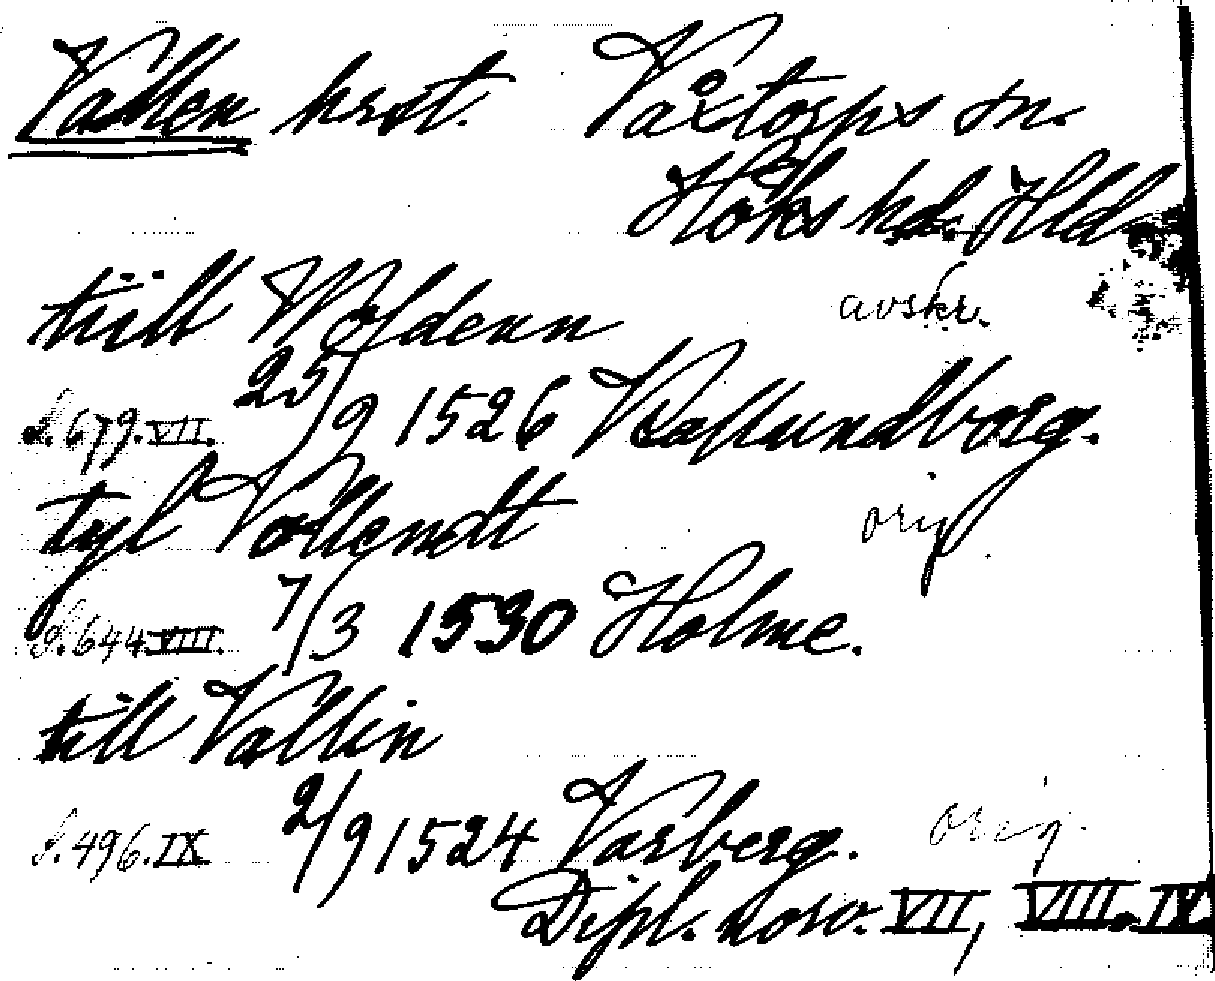 Vallen hrst. Våxtorps sn.
Höks hd. Hld
tiill Woldenn avskr.
S. 679. VII. 25/9 1526 Kallundborg.
tyl Vollendt orig
S. 644 VIII. 7/3 1530 Holme.
till Vallin
S. 496. IX 2/9 1524 Varberg. orig.
Dipl. norv. VII, VIII. IX